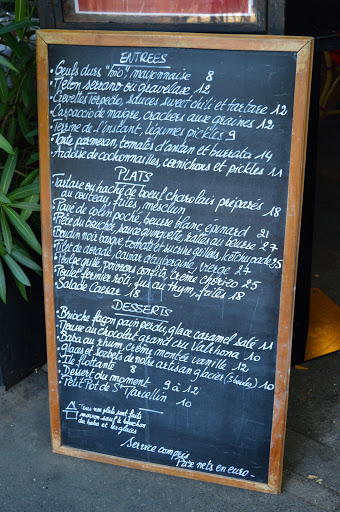 ENTREES
• Œufs durs "bio", mayonnaise 8
• Melon serrano ou gravelax 12
• Crevettes torpedo, sauces sweet chili et tartare 12
• Carpaccio de maigre, crackers aux graines 12
• Terrine de l'instant, légumes pickles 9
• Tarte parmesan, tomates d'antan et burrata 14
• Ardoise de cochonnailles, cornichons et pickles 11
PLATS
• Tartare ou haché de boeuf charolais préparés
au couteau, frites, mesclun 18
• Pavé de colin poché, beurre blanc épinard 21
• Pièce du boucher, sauce, rattes au beurre 27
• Boudin noir basque, tomate et sucrine grillés, ketchup
• Plat de arcade, caviar d'aubergine, verge 27
• Poulpe grillé, poivrons confits, crème chorizo 25
• Poulet fermier rôti, jus au thym, frites 18
• Salade Caesar 18
DESSERTS
• Brioche façon pain perdu, glace caramel salé 11
• Mousse au chocolat grand cru Valrhona 10
• Baba au rhum, crème montée vanille 12
• Glaces et sorbets de notre artisan glacier (3 boules) 10
• Ile flottante 8
• Dessert du moment 9 à 12
• Petit Pot de St Marcellin 10
Tous nos plats sont faits
maison sauf le
du baba et les glaces
Service compris
Prix nets en euro